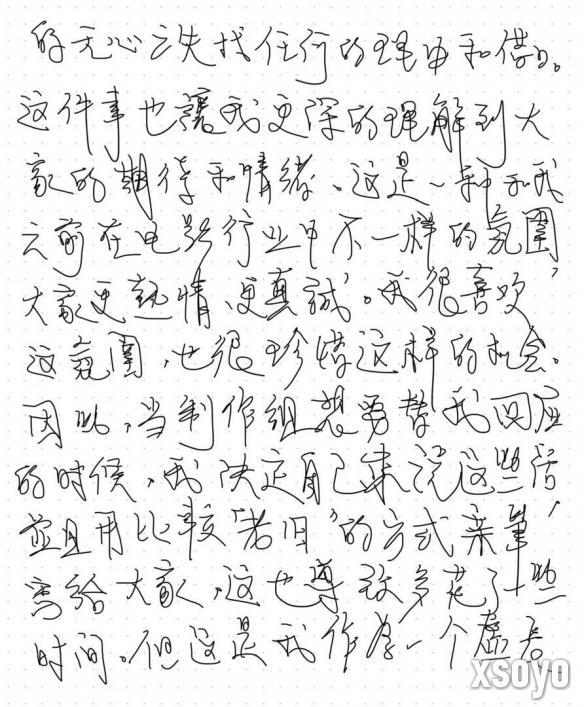 的无心之失找任何的理由和借口。
这件事也讓我更深的理解到大
家的期待和情绪、这是一种和我
之前在电影行业中不一样的氛圍
大家更热情,更真誠。我很喜欢
这氛圍,也很珍惜这样的机会。
因此,当制作组想要替我回应
的时候,我决定自己来说这些话,
並且用比较“老旧”的方式亲筆
写给大家,这也导致多花了一些
时间。但这是我作为一个
xsoyo